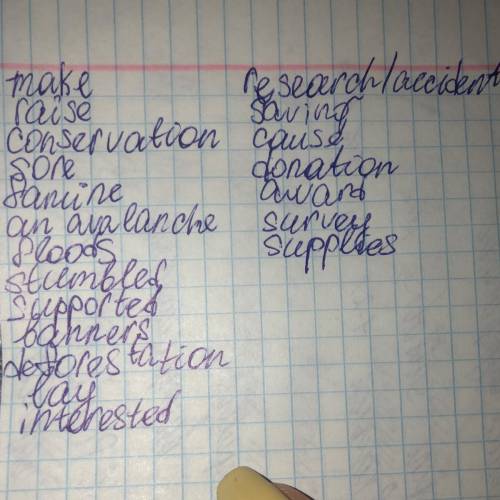 make
raise
conservation
sore
famine
an avalanche
floods
stumbled
supported
banners
deforestation
lay
interested
research/accident
saving
cause
donation
award
survey
supplies